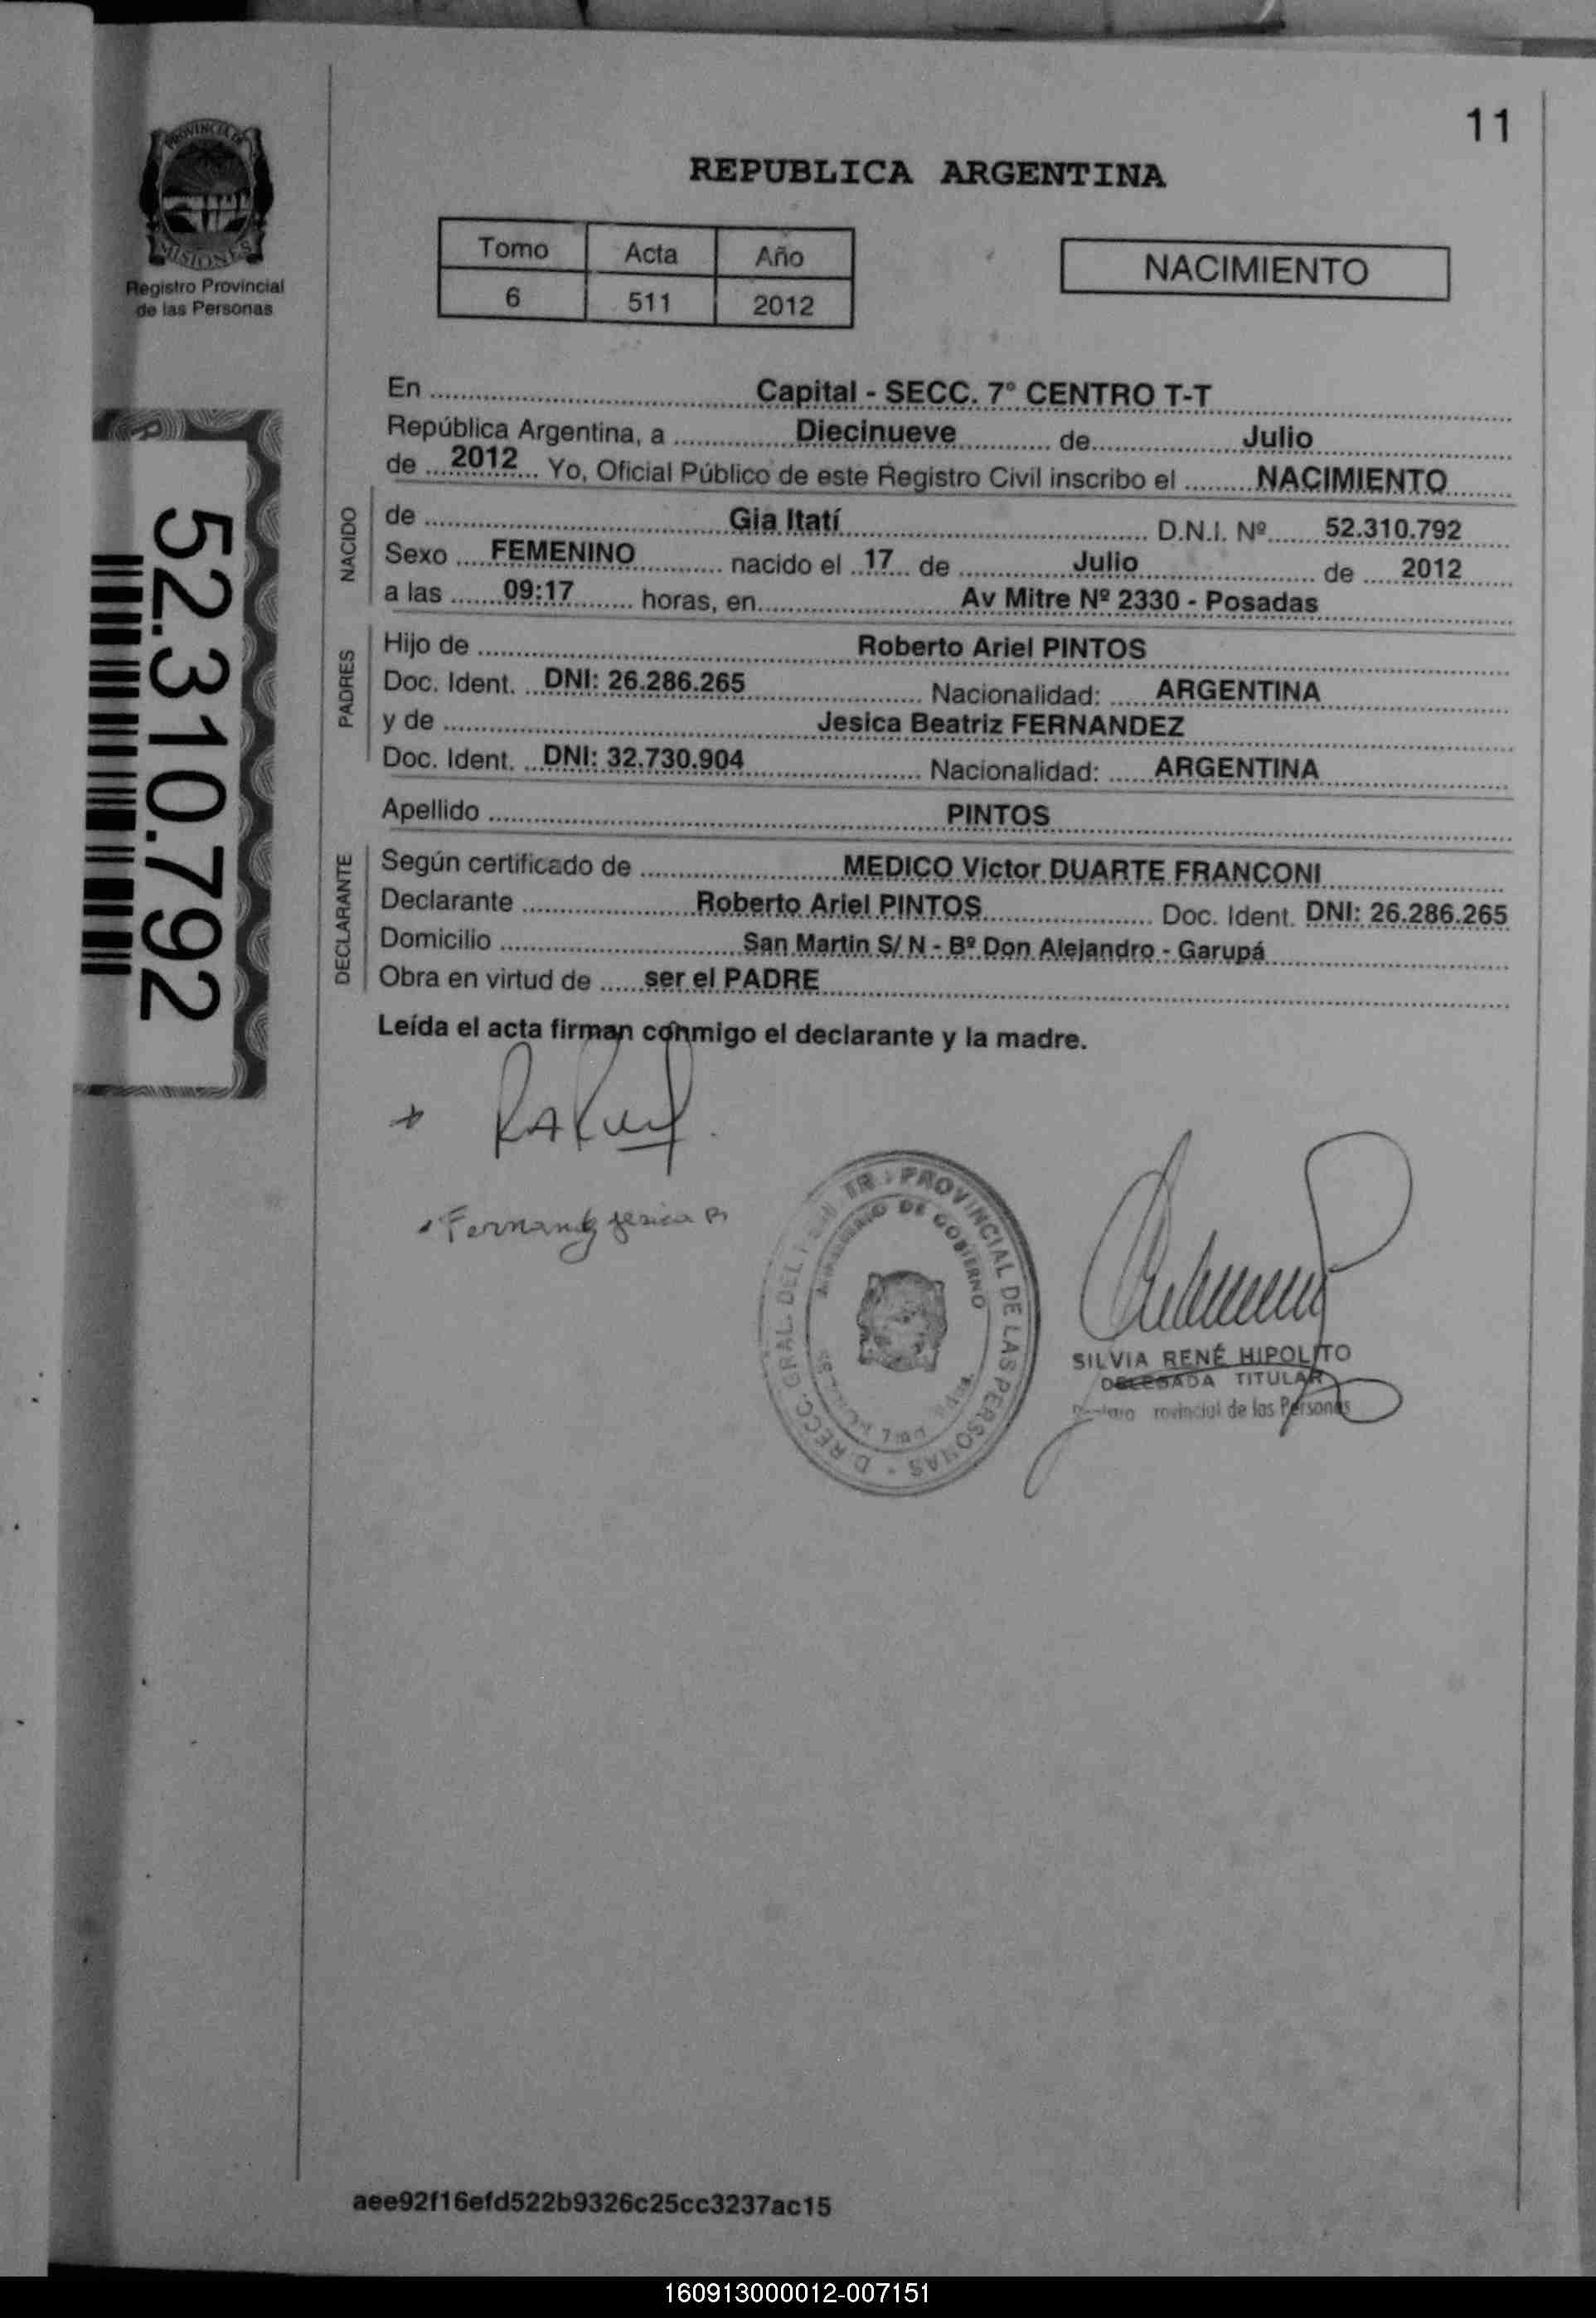 11
PROVINCIA DE
MISIONES
Registro Provincial
de las Personas
REPUBLICA ARGENTINA
Tomo Acta Año
6 511 2012
NACIMIENTO
En Capital - SECC. 7° CENTRO T-T
República Argentina, a Diecinueve de Julio
de 2012 Yo, Oficial Público de este Registro Civil inscribo el NACIMIENTO
NACIDO
de Gia Itatí D.N.I. Nº 52.310.792
Sexo FEMENINO nacido el 17 de Julio de 2012
a las 09:17 horas, en Av Mitre Nº 2330 - Posadas
PADRES
Hijo de Roberto Ariel PINTOS
Doc. Ident. DNI: 26.286.265 Nacionalidad: ARGENTINA
y de Jesica Beatriz FERNANDEZ
Doc. Ident. DNI: 32.730.904 Nacionalidad: ARGENTINA
Apellido PINTOS
DECLARANTE
Según certificado de MEDICO Victor DUARTE FRANCONI
Declarante Roberto Ariel PINTOS Doc. Ident. DNI: 26.286.265
Domicilio San Martin S/ N - Bº Don Alejandro - Garupá
Obra en virtud de ser el PADRE
Leída el acta firman conmigo el declarante y la madre.
52.310.792
Fernandez Jesica B
PROVINCIAL DE LAS PERSONAS - DIRECC. GRAL. DEL
DE GOBIERNO
SILVIA RENÉ HIPOLITO
DELEGADA TITULAR
de las Personas
aee92f16efd522b9326c25cc3237ac15
160913000012-007151